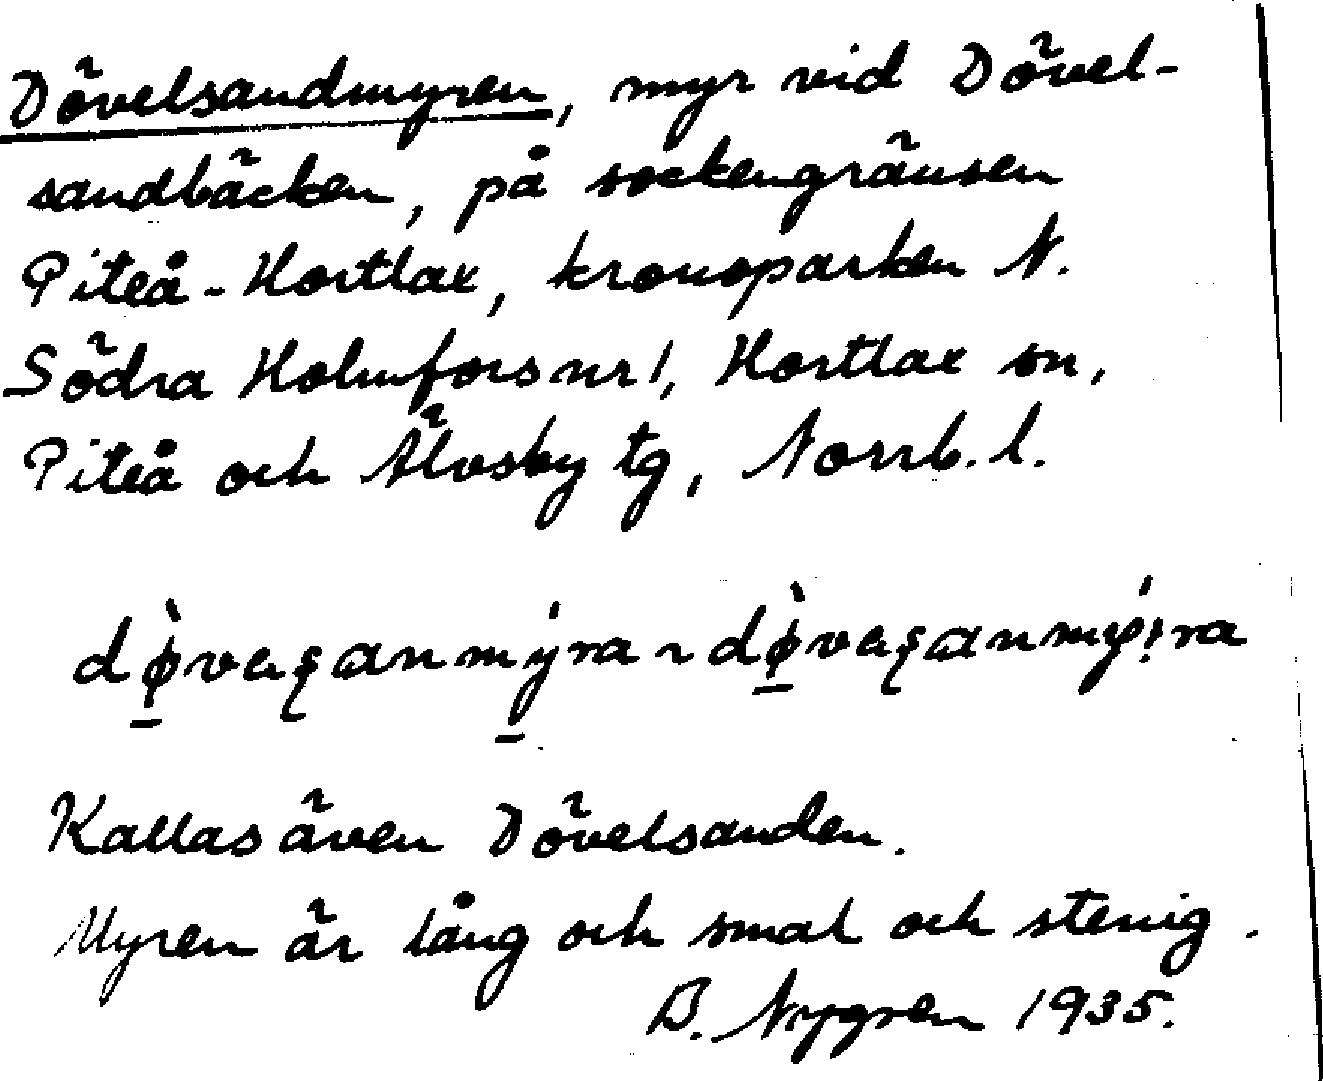 Dövelsandmyren, myr vid Dövel-
sandbäcken, på sockengränsen
Piteå-Hortlax, kronoparken N.
Södra Holmfors nr 1, Hortlax sn,
Piteå och Älvsby tg, Norrb. l.
Kallas även Dövelsanden.
Myren är lång och smal och stenig.
B. Nygren 1935.